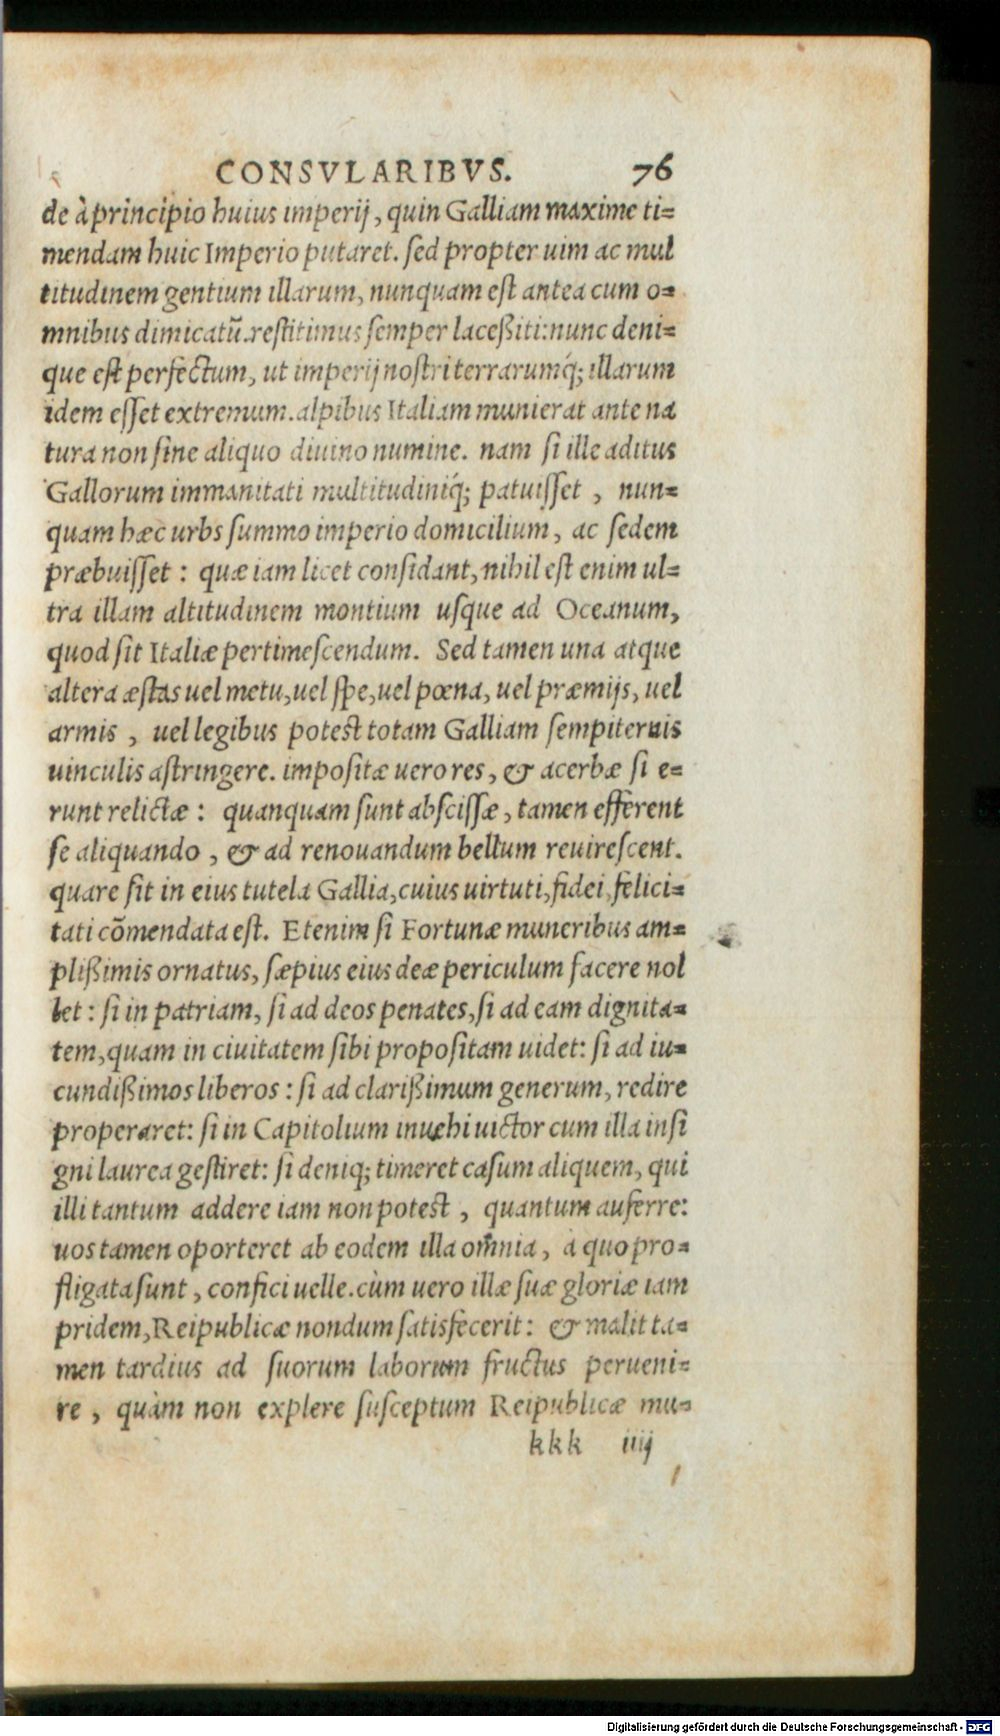 CONSVLARIBVS. 76
de à principio huius imperij, quin Galliam maxime ti=
mendam huic Imperio putaret. sed propter uim ac mul
titudinem gentium illarum, nunquam est antea cum o=
mnibus dimicatũ. restitimus semper laceßiti: nunc deni=
que est perfectum, ut imperij nostri terrarumq́; illarum
idem esset extremum. alpibus Italiam munierat ante na
tura non sine aliquo diuino numine. nam si ille aditus
Gallorum immanitati multitudiniq́; patuisset, nun=
quam hæc urbs summo imperio domicilium, ac sedem
præbuisset: quæ iam licet considant, nihil est enim ul=
tra illam altitudinem montium usque ad Oceanum,
quod sit Italiæ pertimescendum. Sed tamen una atque
altera æstas uel metu, uel spe, uel pœna, uel præmijs, uel
armis, uel legibus potest totam Galliam sempiternis
uinculis astringere. impositæ uero res, & acerbæ si e=
runt relictæ: quanquam sunt abscissæ, tamen efferent
se aliquando, & ad renouandum bellum reuirescent.
quare sit in eius tutela Gallia, cuius uirtuti, fidei, felici=
tati cõmendata est. Etenim si Fortunæ muneribus am=
plißimis ornatus, sæpius eius deæ periculum facere nol
let: si in patriam, si ad deos penates, si ad eam dignita=
tem, quam in ciuitatem sibi propositam uidet: si ad iu=
cundißimos liberos: si ad clarißimum generum, redire
properaret: si in Capitolium inuehi uictor cum illa insi
gni laurea gestiret: si deniq; timeret casum aliquem, qui
illi tantum addere iam non potest, quantum auferre:
uos tamen oporteret ab eodem illa om̃nia, à quo pro=
fligata sunt, confici uelle. cùm uero ille suæ gloriæ iam
pridem, Reipublicæ nondum satisfecerit: & malit ta=
men tardius ad suorum laborum fructus perueni=
re, quàm non explere susceptum Reipublicæ mu=
kkk iiij
Digitalisierung gefördert durch die Deutsche Forschungsgemeinschaft - DFG